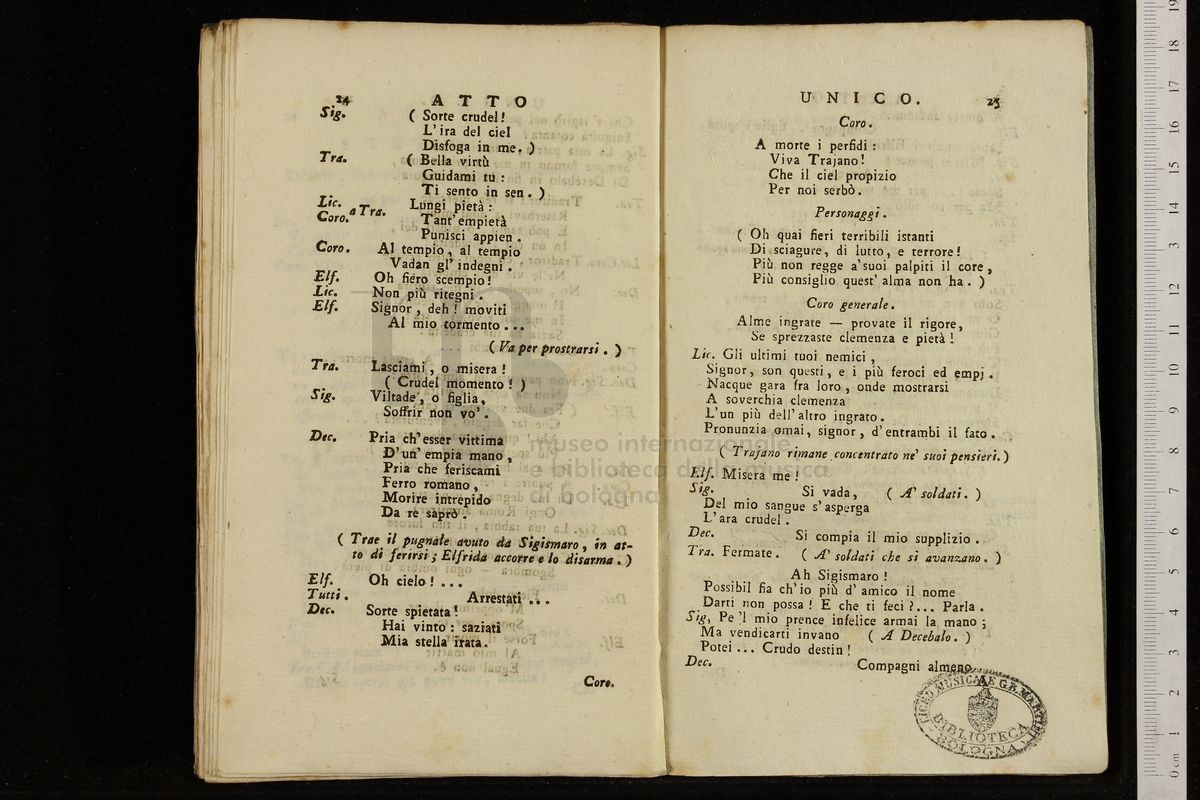 24 ATTO
Sig. ( Sorte crudel!
L'ira del ciel
Disfoga in me. )
Tra. ( Bella virtù
Guidami tu :
Ti sento in sen. )
Lic. Coro. a Tra. Lungi pietà :
Tant' empietà
Punisci appien.
Coro. Al tempio, al tempio
Vadan gl' indegni.
Elf. Oh fiero scempio!
Lic. Non più ritegni.
Elf. Signor, deh! moviti
Al mio tormento ...
( Va per prostrarsi. )
Tra. Lasciami, o misera!
( Crudel momento! )
Sig. Viltade, o figlia,
Soffrir non vo'.
Dec. Pria ch'esser vittima
D'un' empia mano,
Pria che feriscami
Ferro romano,
Morire intrepido
Da re saprò.
( Trae il pugnale avuto da Sigismaro, in at-
to di ferirsi; Elfrida accorre e lo disarma. )
Elf. Oh cielo! ...
Tutti. Arrestati ...
Dec. Sorte spietata!
Hai vinto: saziati
Mia stella irata.
Coro.
UNICO. 25
Coro.
A morte i perfidi :
Viva Trajano!
Che il ciel propizio
Per noi serbò.
Personaggi.
( Oh quai fieri terribili istanti
Di sciagure, di lutto, e terrore!
Più non regge a'suoi palpiti il core,
Più consiglio quest' alma non ha. )
Coro generale.
Alme ingrate — provate il rigore,
Se sprezzaste clemenza e pietà!
Lic. Gli ultimi tuoi nemici,
Signor, son questi, e i più feroci ed empj.
Nacque gara fra loro, onde mostrarsi
A soverchia clemenza
L'un più dell'altro ingrato.
Pronunzia omai, signor, d'entrambi il fato.
( Trajano rimane concentrato ne' suoi pensieri. )
Elf. Misera me!
Sig. Si vada, ( A' soldati. )
Del mio sangue s'asperga
L'ara crudel.
Dec. Si compia il mio supplizio.
Tra. Fermate. ( A' soldati che si avanzano. )
Ah Sigismaro!
Possibil fia ch'io più d'amico il nome
Darti non possa! E che ti feci?... Parla.
Sig, Pe 'l mio prence infelice armai la mano;
Ma vendicarti invano ( A Decebalo. )
Potei ... Crudo destin!
Dec. Compagni almeno
LICEO MUSICALE G.B. MARTINI
BIBLIOTECA
BOLOGNA
museo internazionale
e biblioteca della musica
di bologna